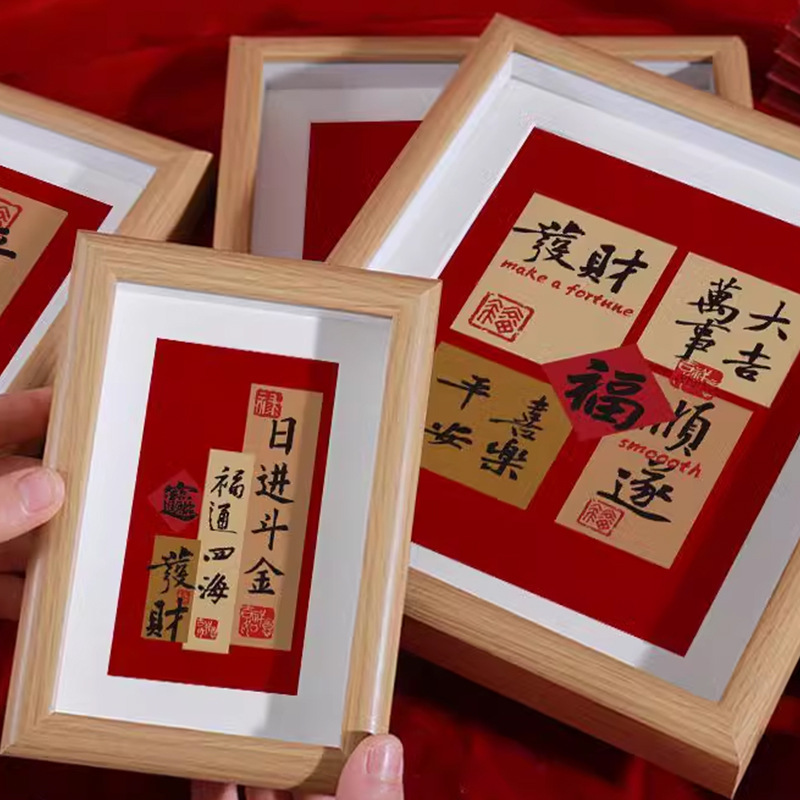 發財
make a fortune
福
萬事
大吉
平安
喜樂
福
順遂
smoooth
福
禄
日进斗金
福通四海
發財